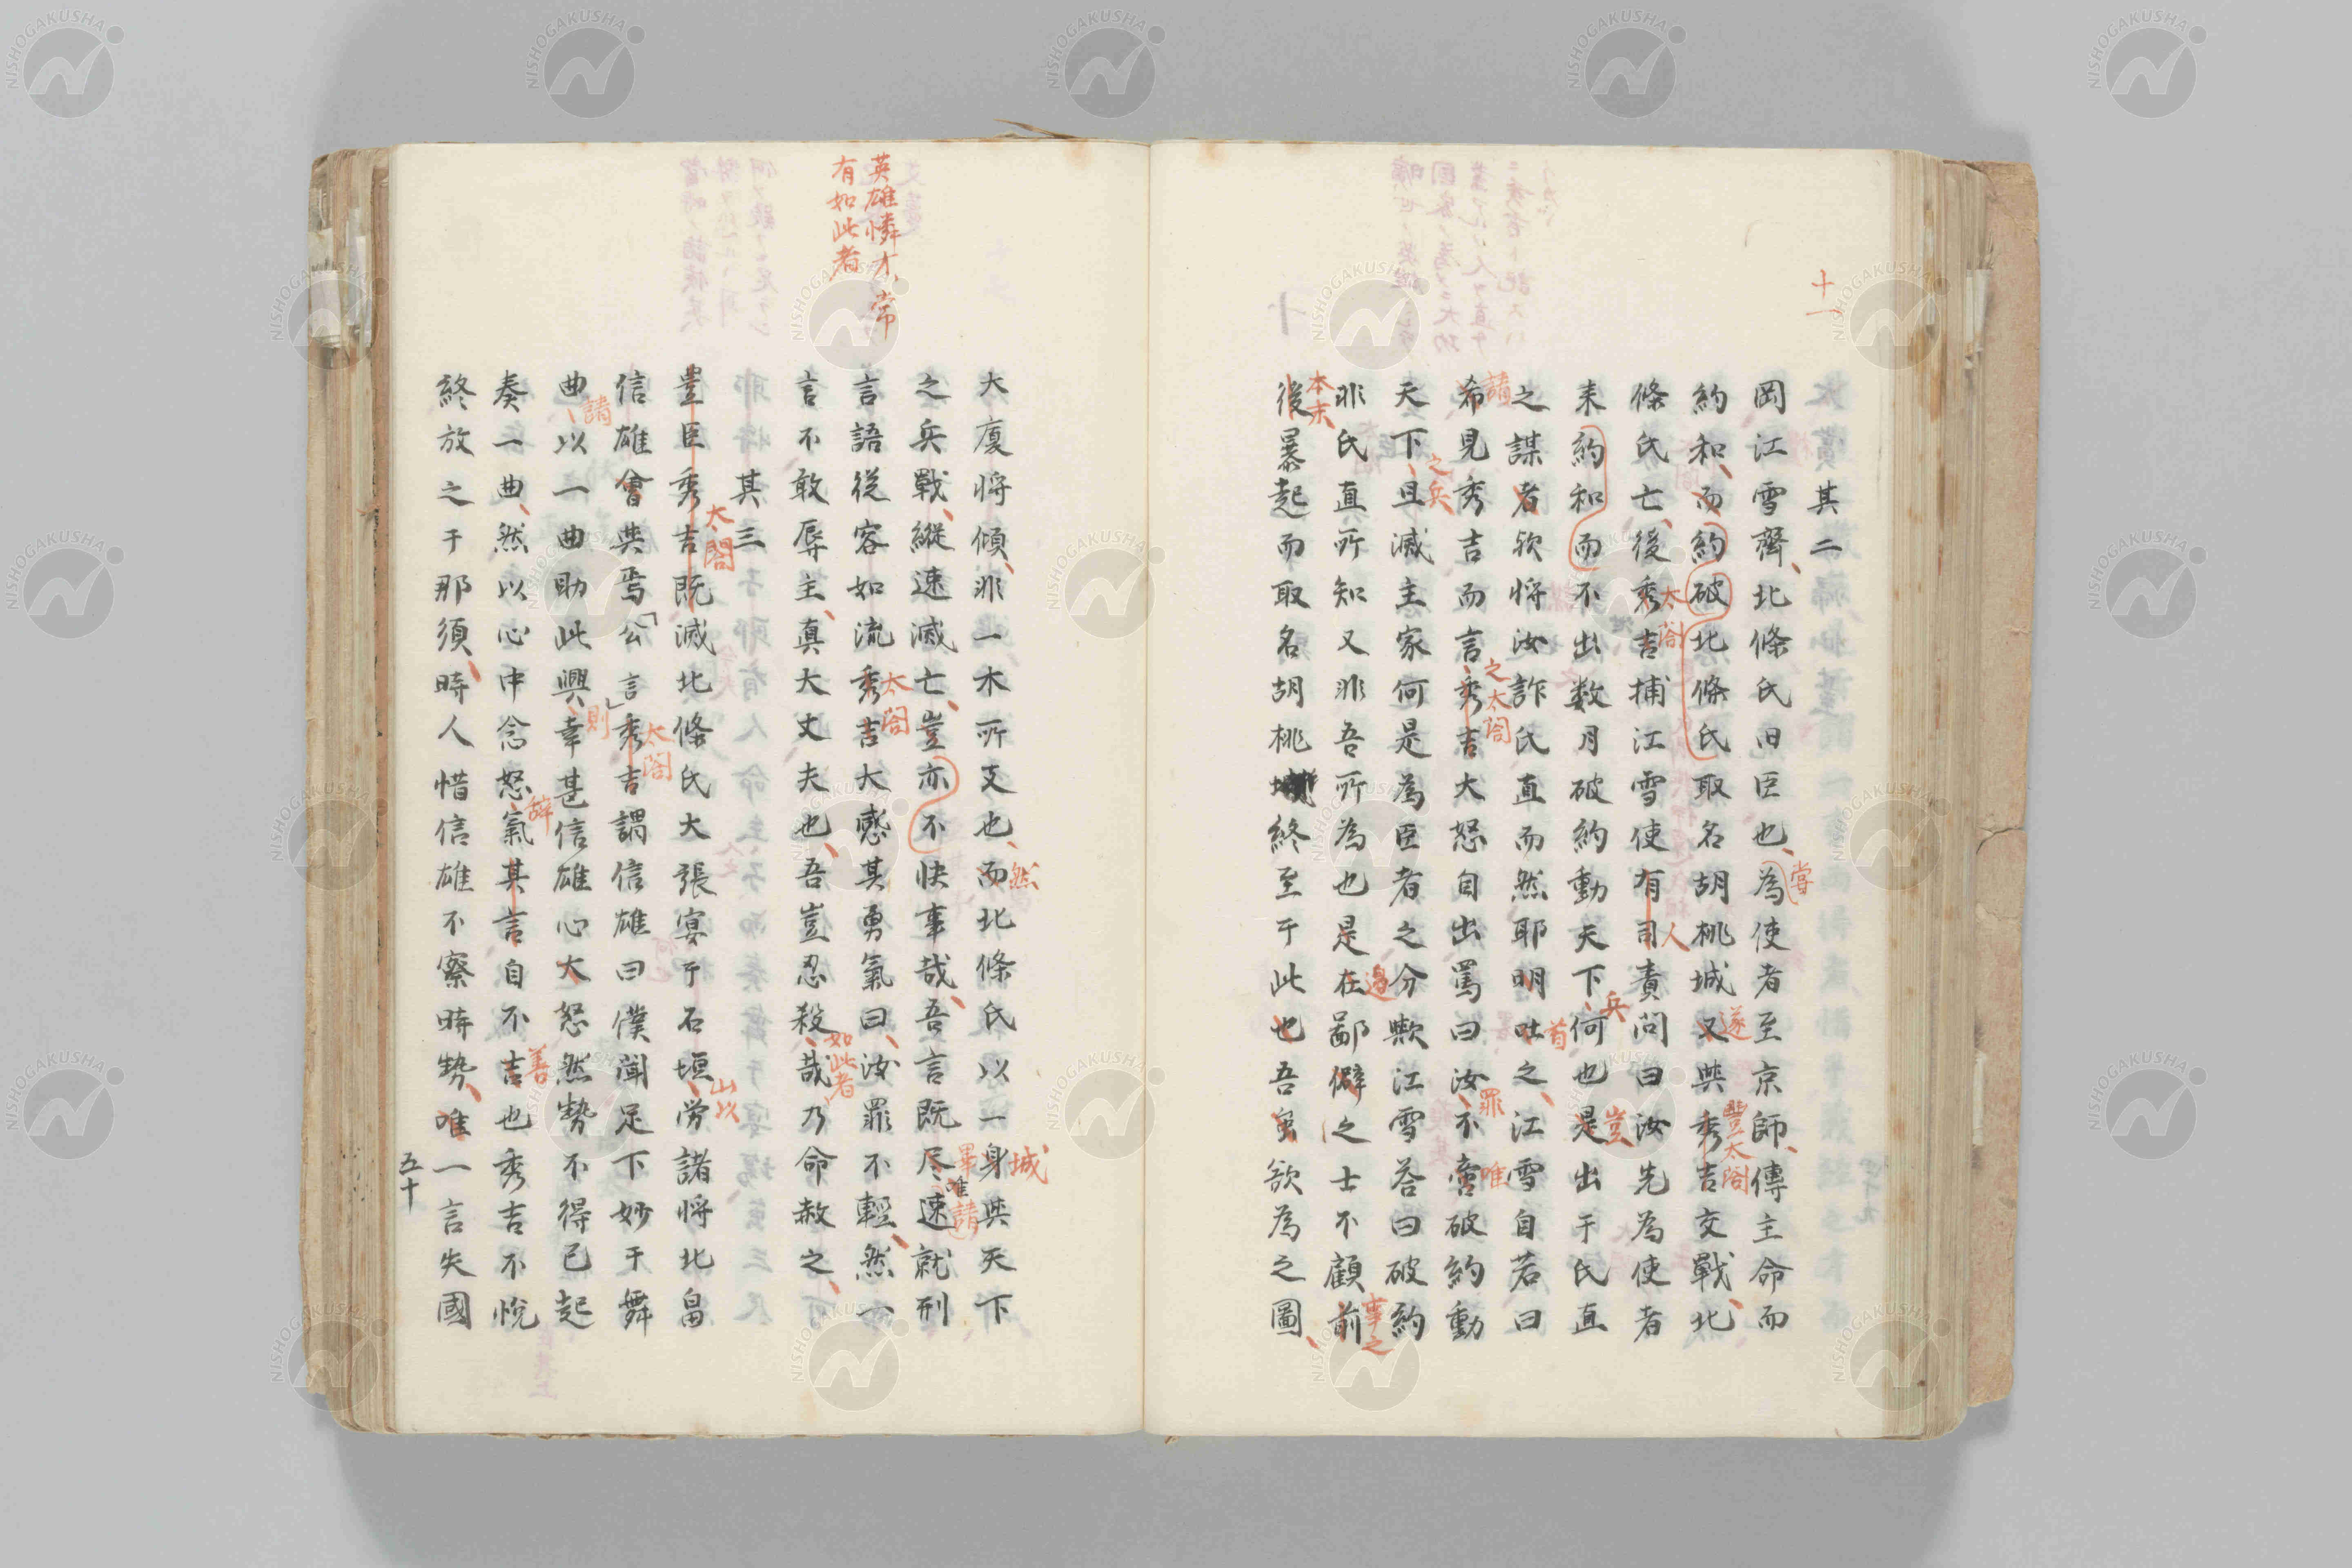 十一
其二
岡江雪齊北條氏旧臣也為使者至京師傳主命而
嘗
約和而約破北條氏取名胡桃城又與秀吉交戰北
遂
豐太閤
條氏亡後秀吉捕江雪使有司責問曰汝先為使者
太閤
人
来約和而不出数月破約動天下何也是出于氏直
兵
豈
之謀者欤将汝詐氏直而然耶明吐之江雪自若曰
首
希見秀吉而言秀吉大怒自出罵曰汝不啻破約動
請
之太閤
罪
唯
天下且滅主家何是為臣者之分歟江雪答曰破約
之兵
非氏直所知又非吾所為也是在鄙僻之士不顧前
邊
事之
本末
後暴起而取名胡桃城終至于此也吾虽欲為之圖
英雄憐才常
有如此者
大廈将傾非一木所支也而北條氏以一身與天下
然
城
之兵戰縦速滅亡豈亦不快事哉吾言既尽速就刑
畢
唯
請
言語從容如流秀吉大感其勇氣曰汝罪不輕然一
太閤
言不敢辱主真大丈夫也吾豈忍殺哉乃命赦之
如此者
其三
豊臣秀吉既滅北條氏大張宴于石垣労諸将北畠
太閤
山以
信雄會與焉公言秀吉謂信雄曰僕聞足下妙于舞
太閤
曲以一曲助此興幸甚信雄心大怒然勢不得已起
請
則
奏一曲然以心中念怒氣其言自不吉也秀吉不悅
辞
善
終放之于那須時人惜信雄不察時勢唯一言失國
五十